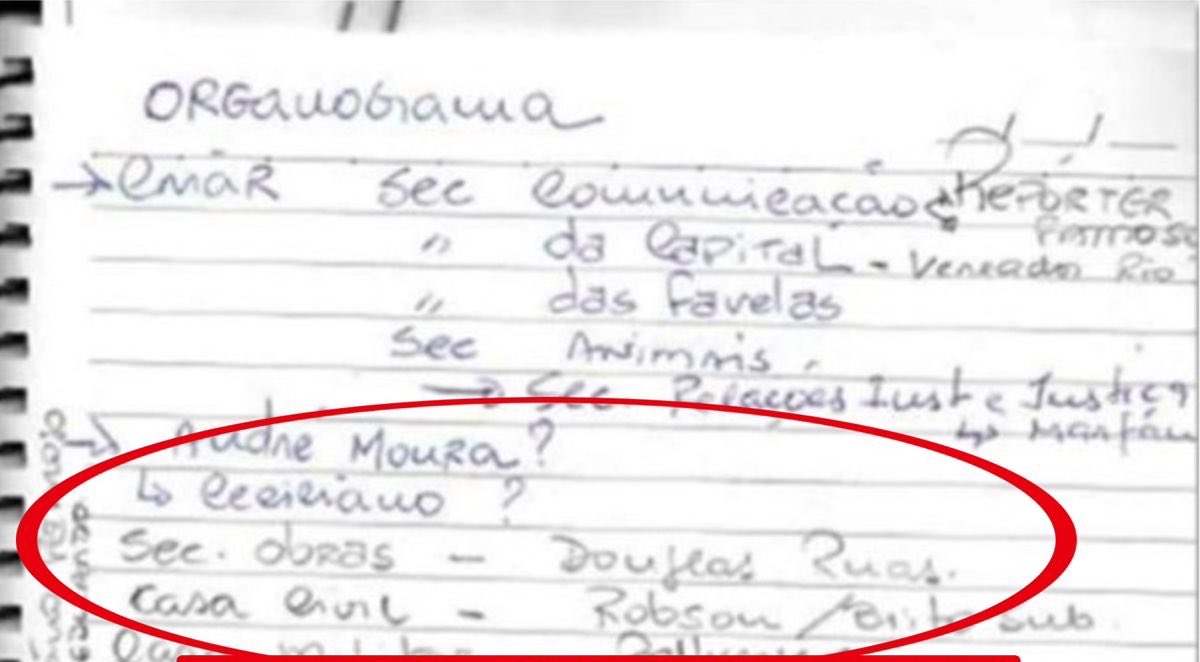 ORGanoGrama
→ CMAR Sec Comunicação → REPÓRTER FAMOSO
" da CAPITAL - Vereador Rio
" das Favelas
Sec ANIMAIS
→ Sec Relações Inst e Justiça
→ André Moura? ↳
↳ ?
Sec. obras - Douglas Ruas.
Casa Civil - Robson / Brito sub.